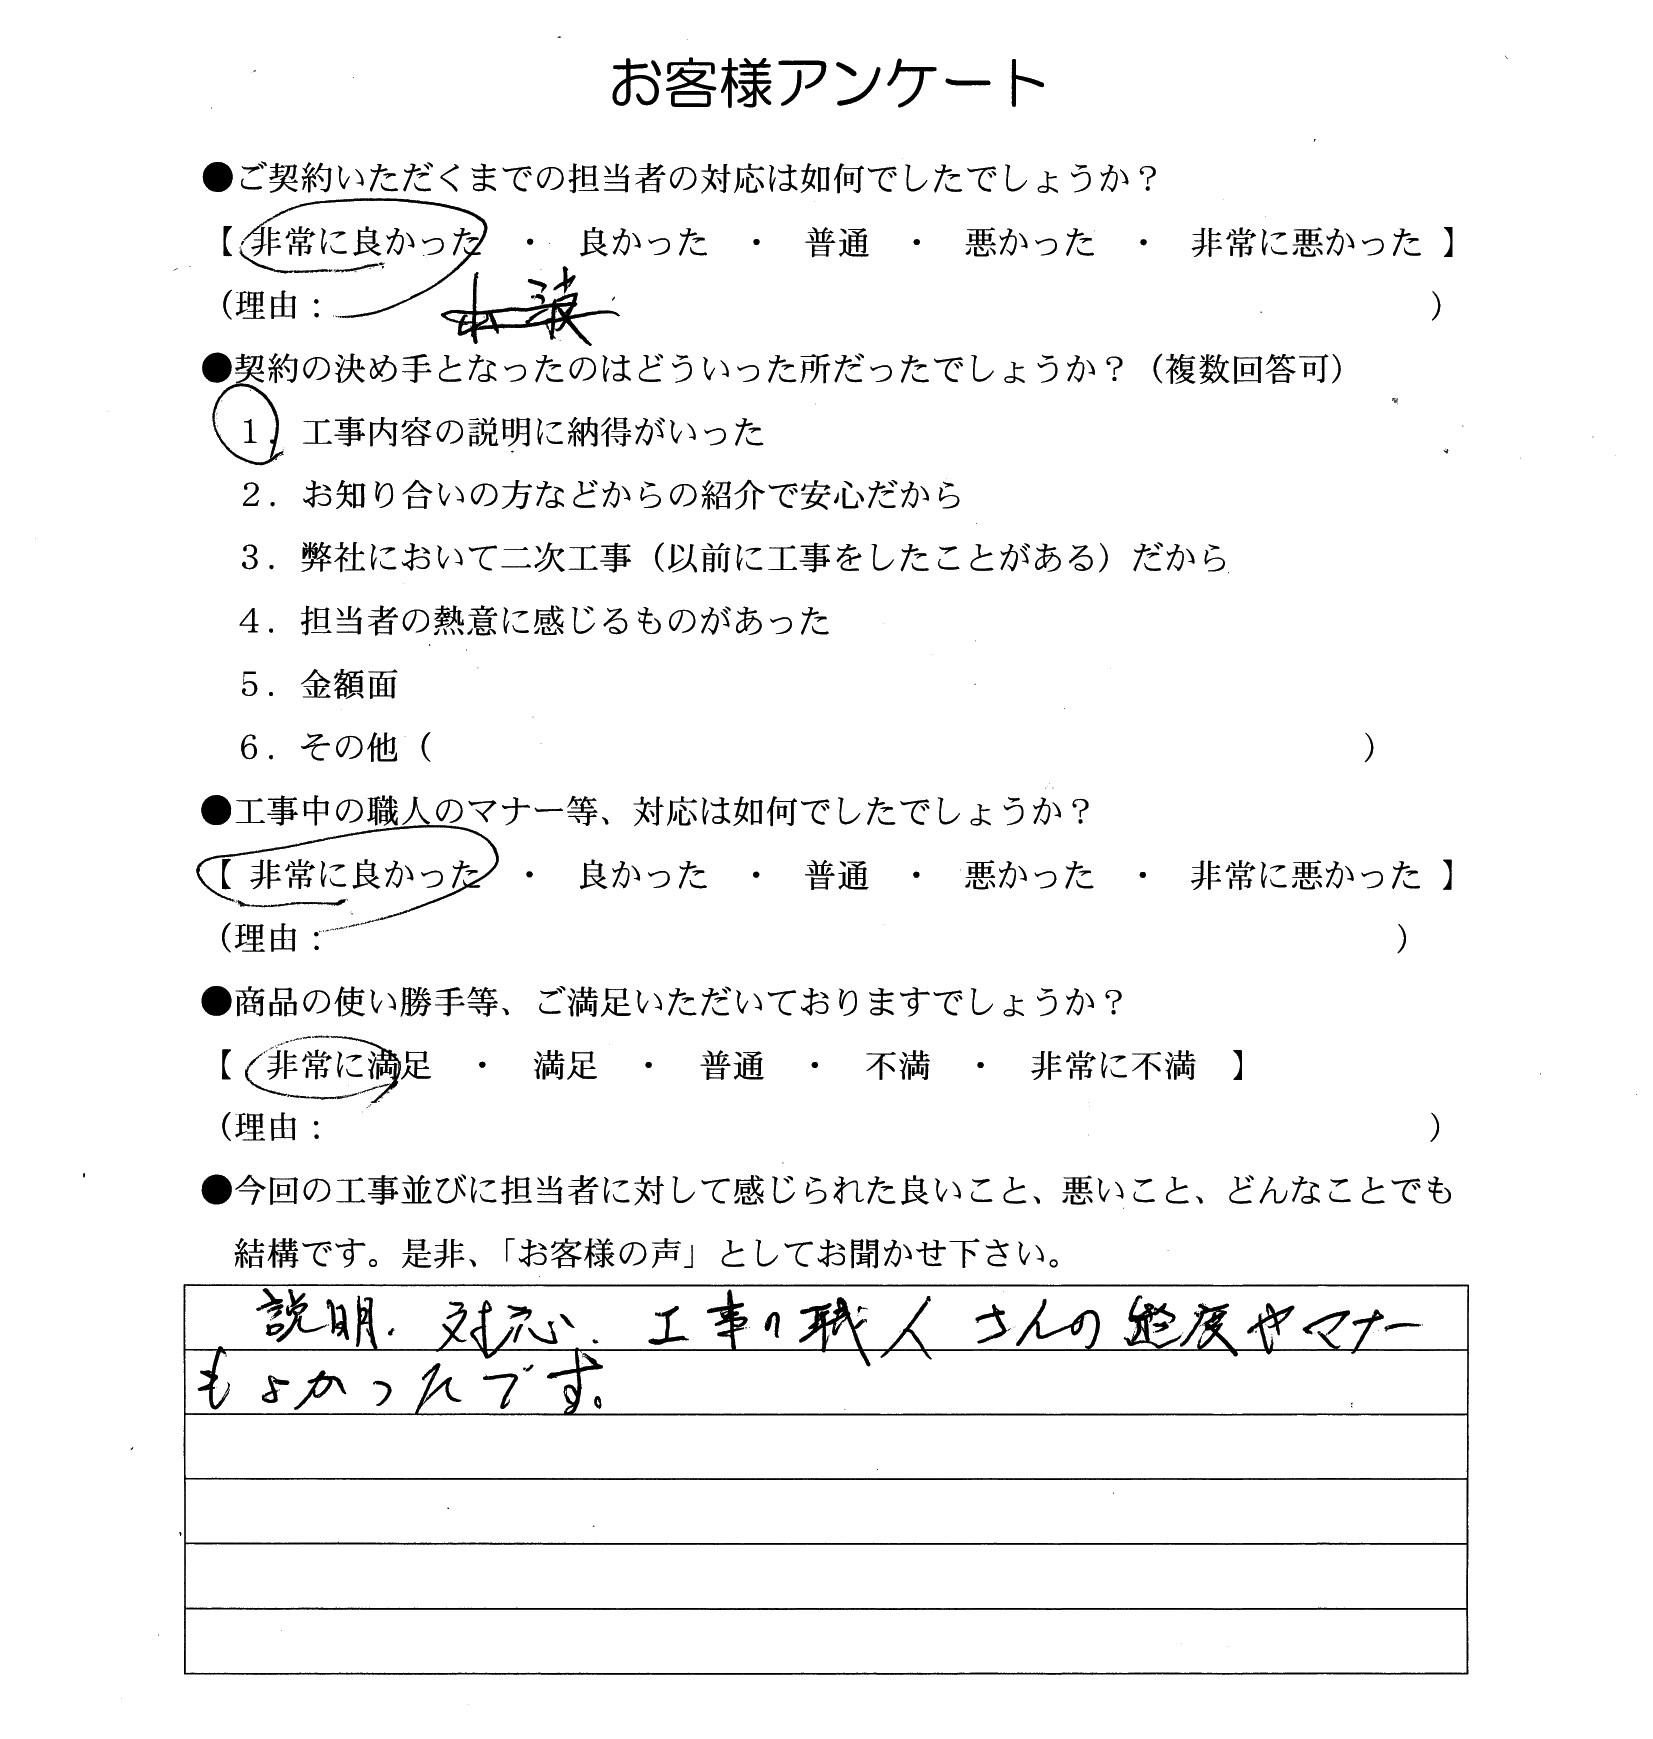 お客様アンケート
●ご契約いただくまでの担当者の対応は如何でしたでしょうか？
【 非常に良かった ・ 良かった ・ 普通 ・ 悪かった ・ 非常に悪かった 】
（理由： ）
●契約の決め手となったのはどういった所だったでしょうか？（複数回答可）
１．工事内容の説明に納得がいった
２．お知り合いの方などからの紹介で安心だから
３．弊社において二次工事（以前に工事をしたことがある）だから
４．担当者の熱意に感じるものがあった
５．金額面
６．その他（ ）
●工事中の職人のマナー等、対応は如何でしたでしょうか？
【 非常に良かった ・ 良かった ・ 普通 ・ 悪かった ・ 非常に悪かった 】
（理由： ）
●商品の使い勝手等、ご満足いただいておりますでしょうか？
【 非常に満足 ・ 満足 ・ 普通 ・ 不満 ・ 非常に不満 】
（理由： ）
●今回の工事並びに担当者に対して感じられた良いこと、悪いこと、どんなことでも
結構です。是非、「お客様の声」としてお聞かせ下さい。
説明、対応、工事の職人さんの態度やマナー
もよかったです。